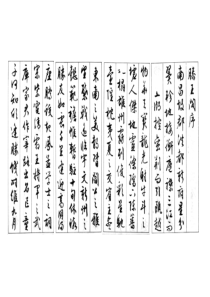 滕王閣序
南昌故郡洪都新府星分
翼軫地接衡廬襟三江而帶
五湖控蠻荊而引甌越
物華天寶龍光射牛斗之
墟人傑地靈徐孺下陳蕃
之榻雄州霧列俊彩星馳
臺隍枕夷夏之交賓主盡
東南之美都督閻公之雅
望棨戟遙臨宇文新州之懿
範襜帷暫駐十旬休暇
勝友如雲千里逢迎高朋滿
座騰蛟起鳳孟學士之詞
宗紫電清霜王將軍之武
庫家君作宰路出名區童
子何知躬逢勝餞時維九月